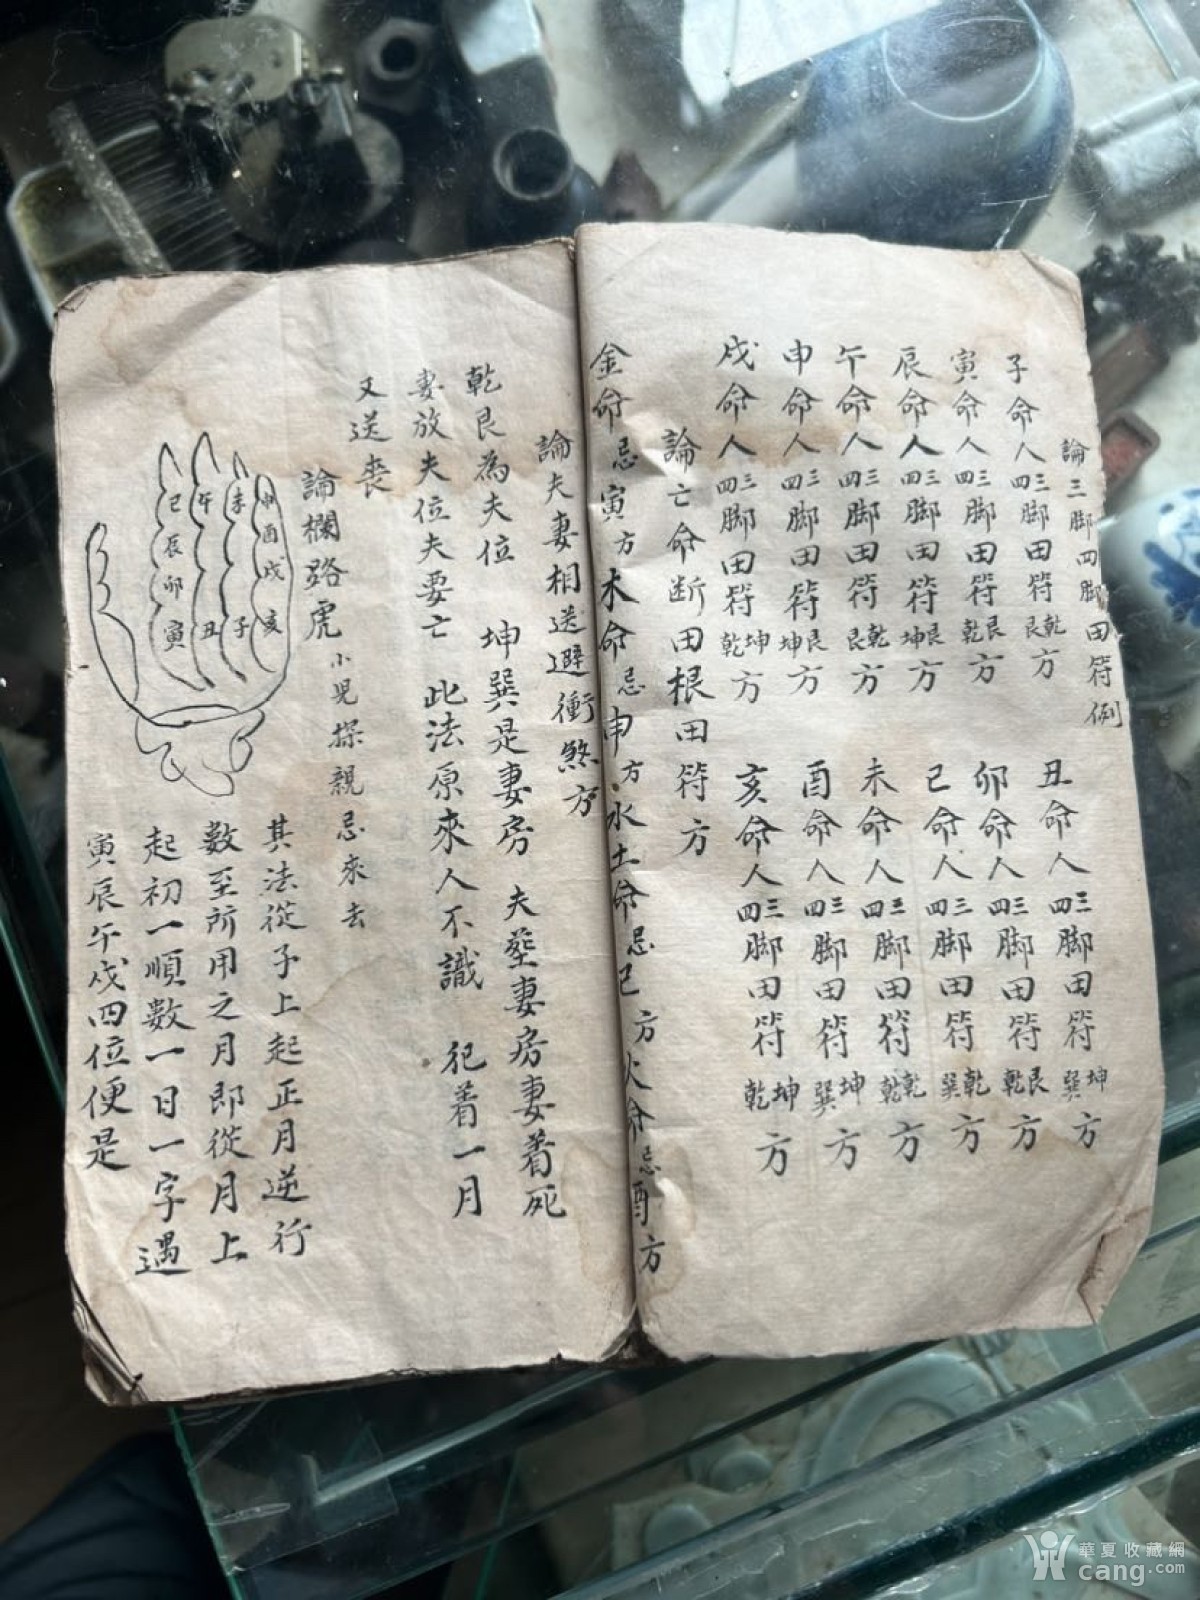 論三脚四脚田符例
子命人三四脚田符乾艮方
丑命人三四脚田符坤巽方
寅命人三四脚田符艮乾方
卯命人三四脚田符艮乾方
辰命人三四脚田符艮坤方
巳命人三四脚田符乾巽方
午命人三四脚田符乾艮方
未命人三四脚田符乾乾方
申命人三四脚田符艮坤方
酉命人三四脚田符坤巽方
戍命人三四脚田符坤乾方
亥命人三四脚田符坤乾方
論亡命断田根田符方
金命忌寅方木命忌申方水土命忌巳方火命忌酉方
論夫妻相送避衝煞方
乾艮為夫位 坤巽是妻房 夫塟妻房妻着死
妻放夫位夫要亡 此法原來人不識 犯着一月
又送丧
論欄路虎 小児探親忌來去
申酉戌亥
未子
午丑
巳辰卯寅
其法從子上起正月逆行
數至所用之月即從月上
起初一順數一日一字遇
寅辰午戍四位便是
華夏收藏網
cang.com